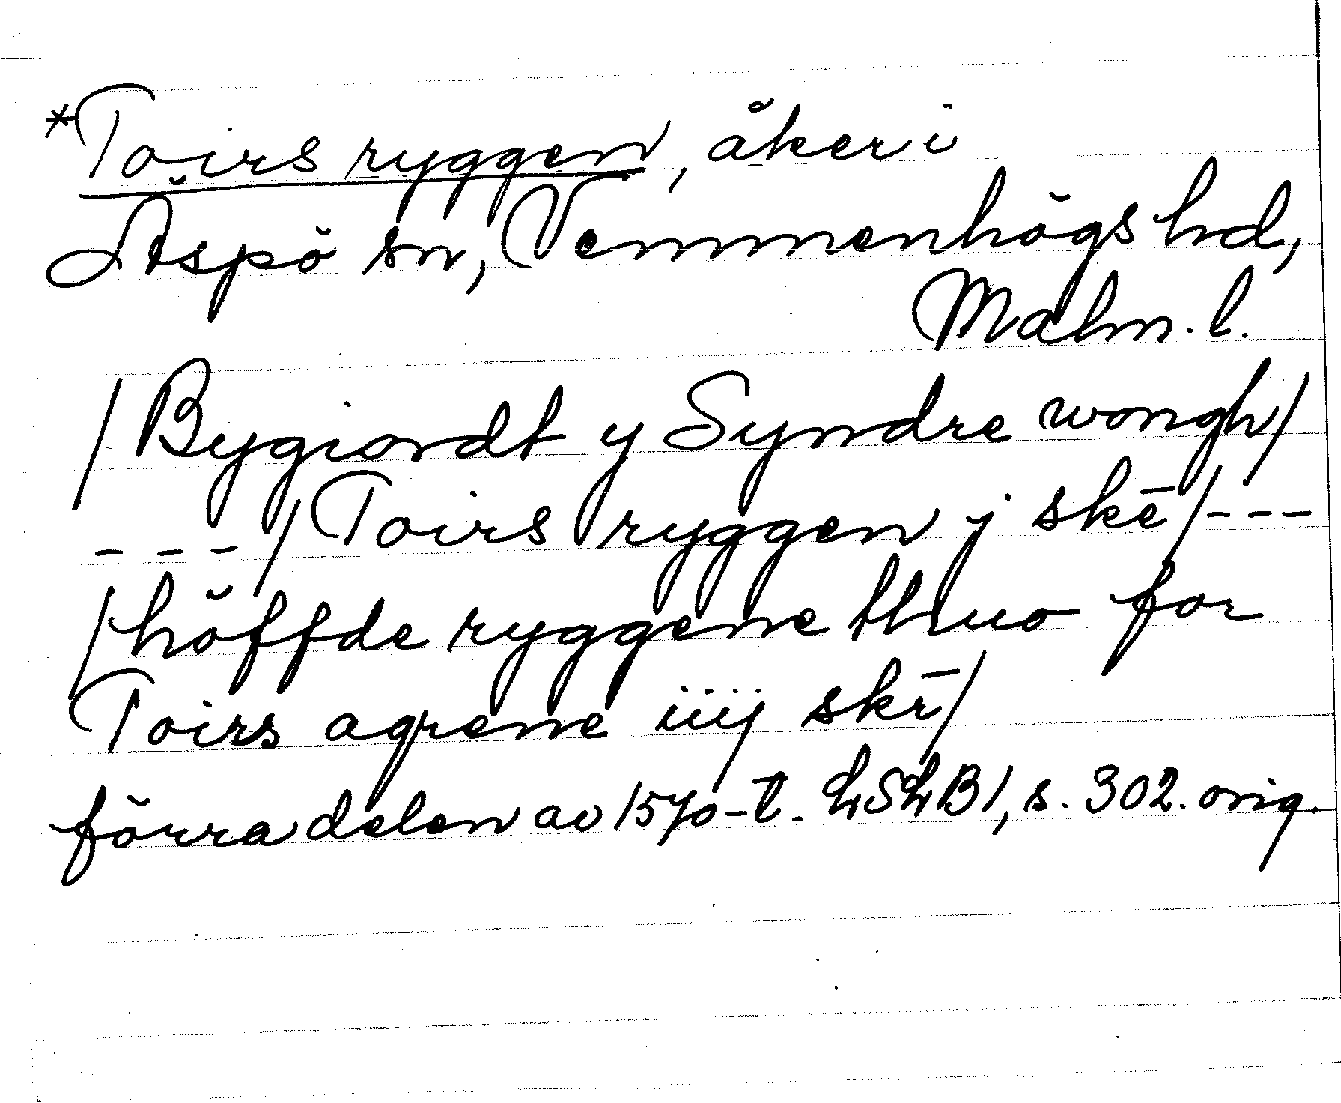 *Toirs ryggen, åker i
Äspö sn, Vemmenhögs hd,
Malm. l.
/Bygiordt y Syndre wongh/
- - - /Toirs ryggen j skē/---
/höffde ryggene thuo for
Toirs agrene iiij skē/
förra delen av 1570-t. LSLB1, s. 302. orig.